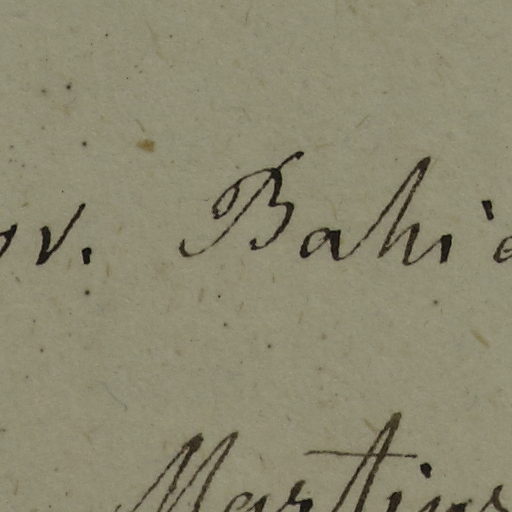 ov. Bahia
Martius